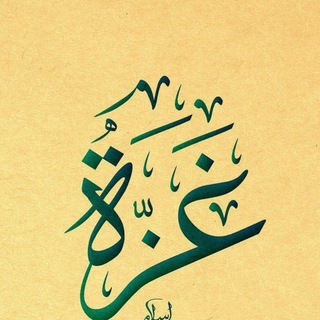 غَزَّةُ
إسلام